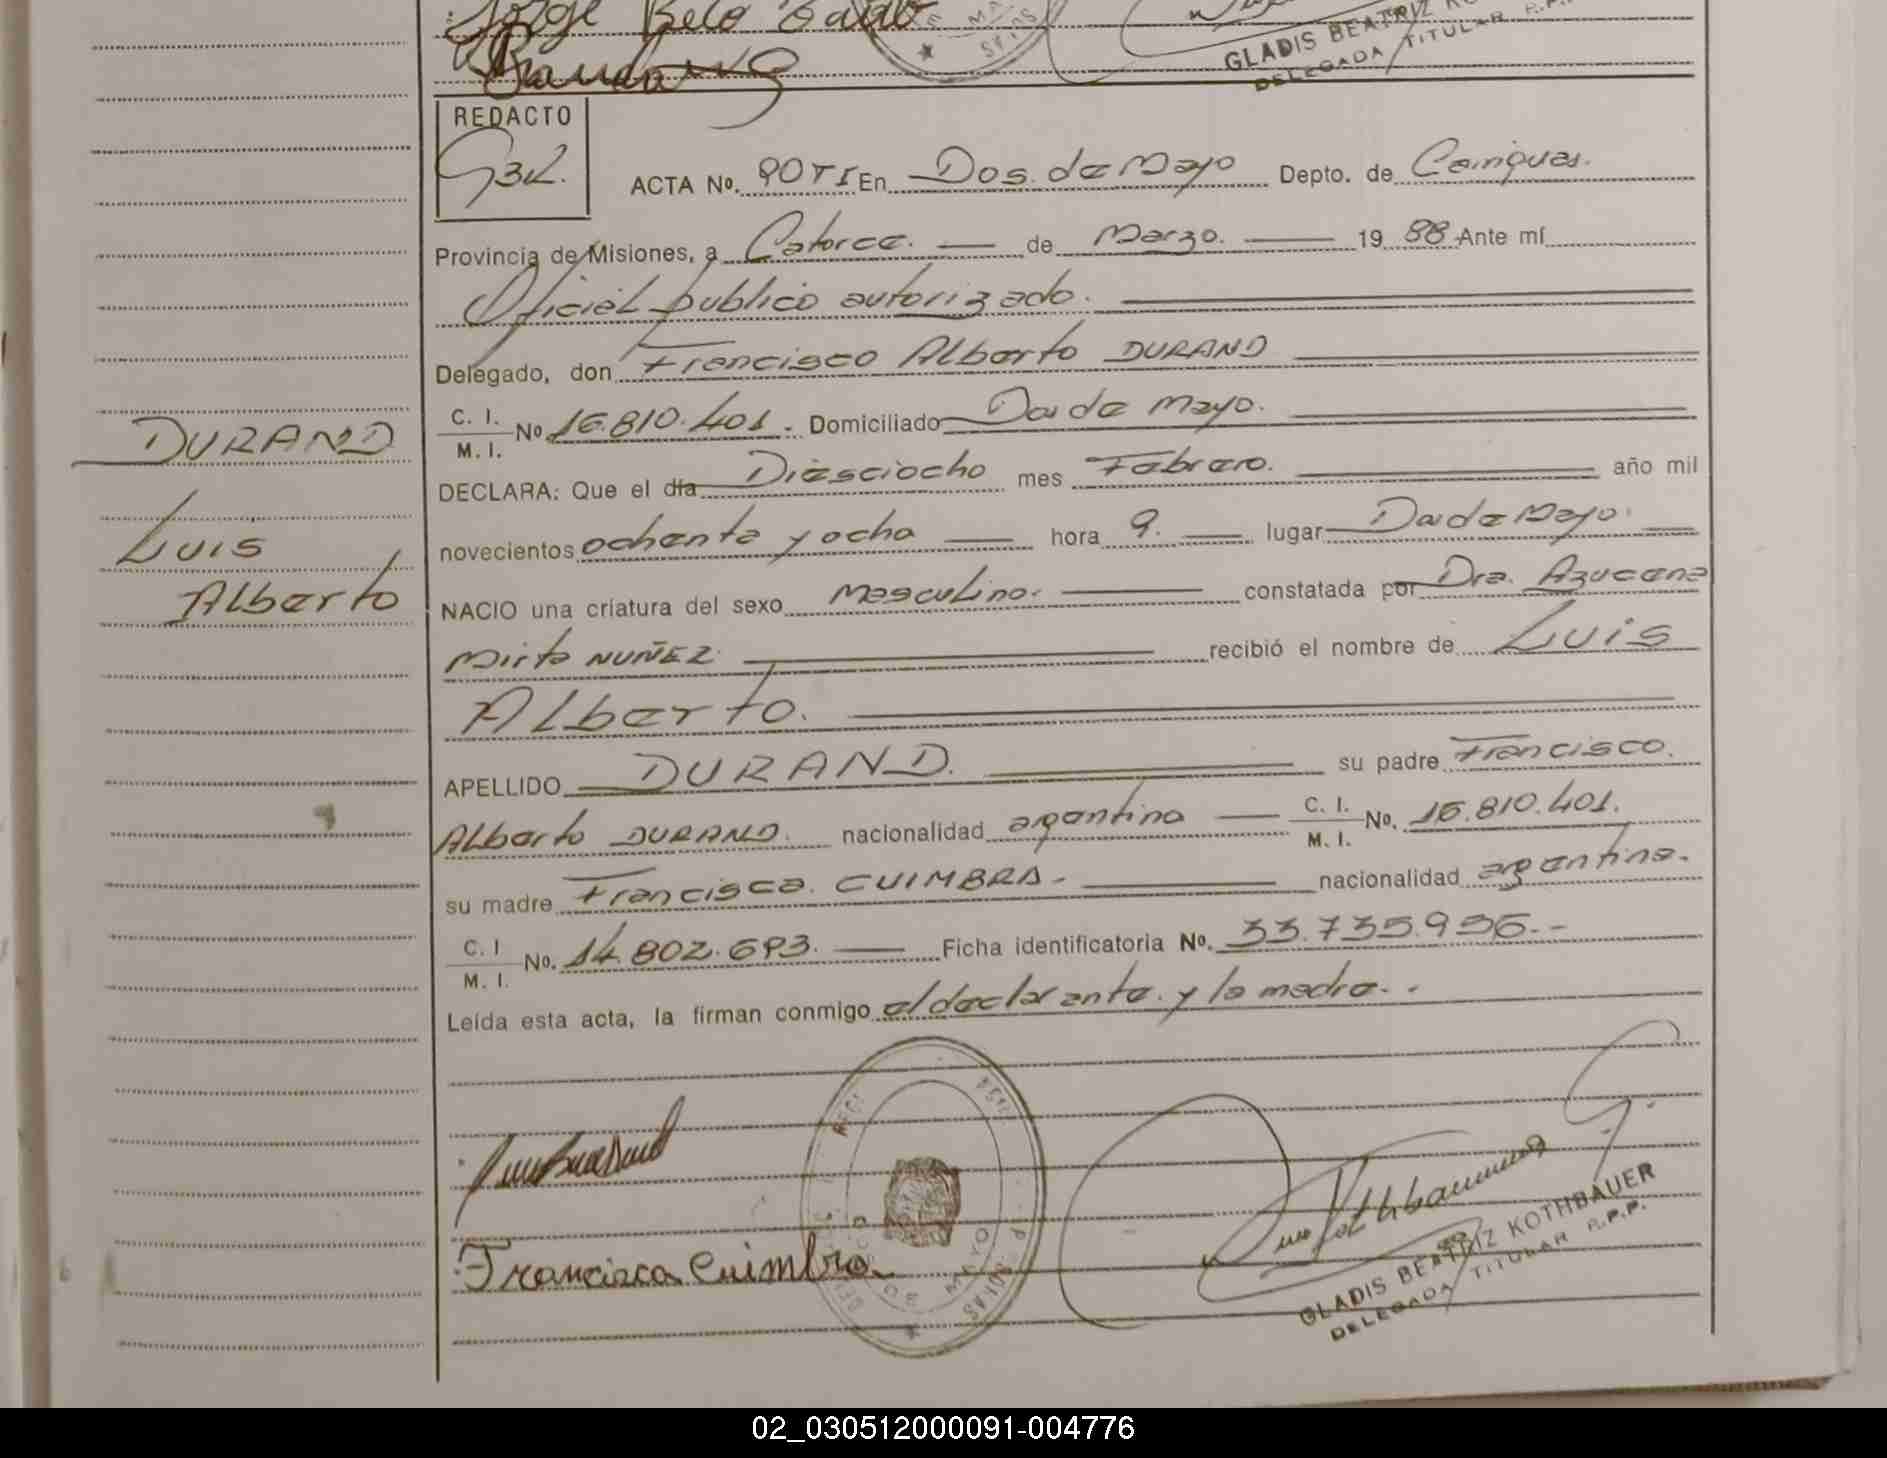 Jorge
GLADIS BEATRIZ
DELEGADA TITULAR R.P.P.
REDACTO
ACTA No. 90 T I En Dos de Mayo Depto. de Cainguas.
Provincia de Misiones, a Catorce. de Marzo. 19 88 Ante mí
Oficial publico autorizado.
Delegado, don Francisco Alberto DURAND
C. I.
M. I. No 16.810.401. Domiciliado Dos de Mayo.
DURAND
DECLARA: Que el día Diesciocho mes Febrero. año mil
Luis
novecientos ochenta y ocho hora 9. lugar Dos de Mayo.
Alberto
NACIO una criatura del sexo Masculino. constatada por Dra. Azucena
Mirta NUÑEZ recibió el nombre de Luis
Alberto.
APELLIDO DURAND. su padre Francisco.
Alberto DURAND. nacionalidad argentina C. I.
M. I. No. 16.810.401.
su madre Francisca. CUIMBRA.- nacionalidad argentina.
C. I
M. I. No. 14.802.693. Ficha identificatoria No. 33.735.936.-
Leída esta acta, la firman conmigo el declarante. y la madre..
Francisca Cuimbra
GLADIS BEATRIZ KOTHBAUER
DELEGADA TITULAR R.P.P.
02_030512000091-004776